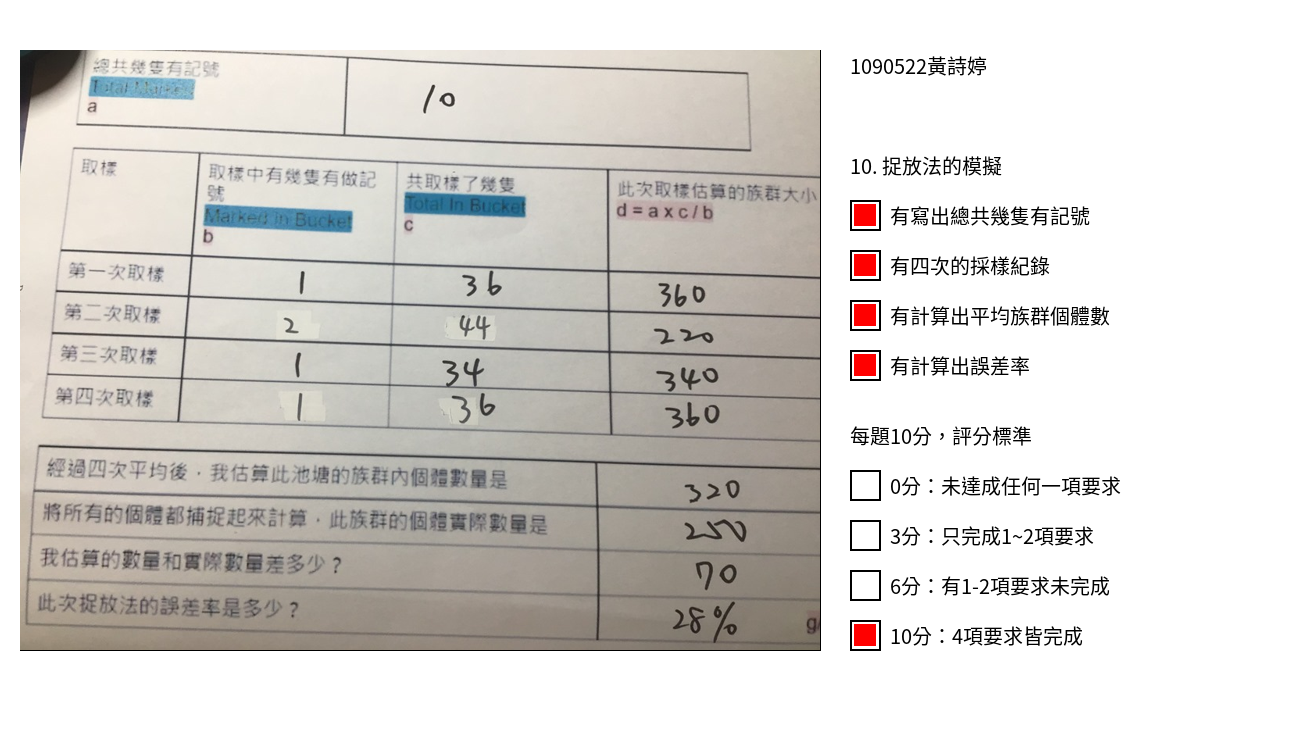 總共幾隻有記號
Total Marked
a
10
取樣
取樣中有幾隻有做記
號
Marked in Bucket
b
共取樣了幾隻
Total In Bucket
c
此次取樣估算的族群大小
d = a x c / b
第一次取樣 1 36 360
第二次取樣 2 44 220
第三次取樣 1 34 340
第四次取樣 1 36 360
經過四次平均後，我估算此池塘的族群內個體數量是 320
將所有的個體都捕捉起來計算，此族群的個體實際數量是 250
我估算的數量和實際數量差多少？ 70
此次捉放法的誤差率是多少？ 28%
1090522黃詩婷
10. 捉放法的模擬
有寫出總共幾隻有記號
有四次的採樣紀錄
有計算出平均族群個體數
有計算出誤差率
每題10分，評分標準
0分：未達成任何一項要求
3分：只完成1~2項要求
6分：有1-2項要求未完成
10分：4項要求皆完成